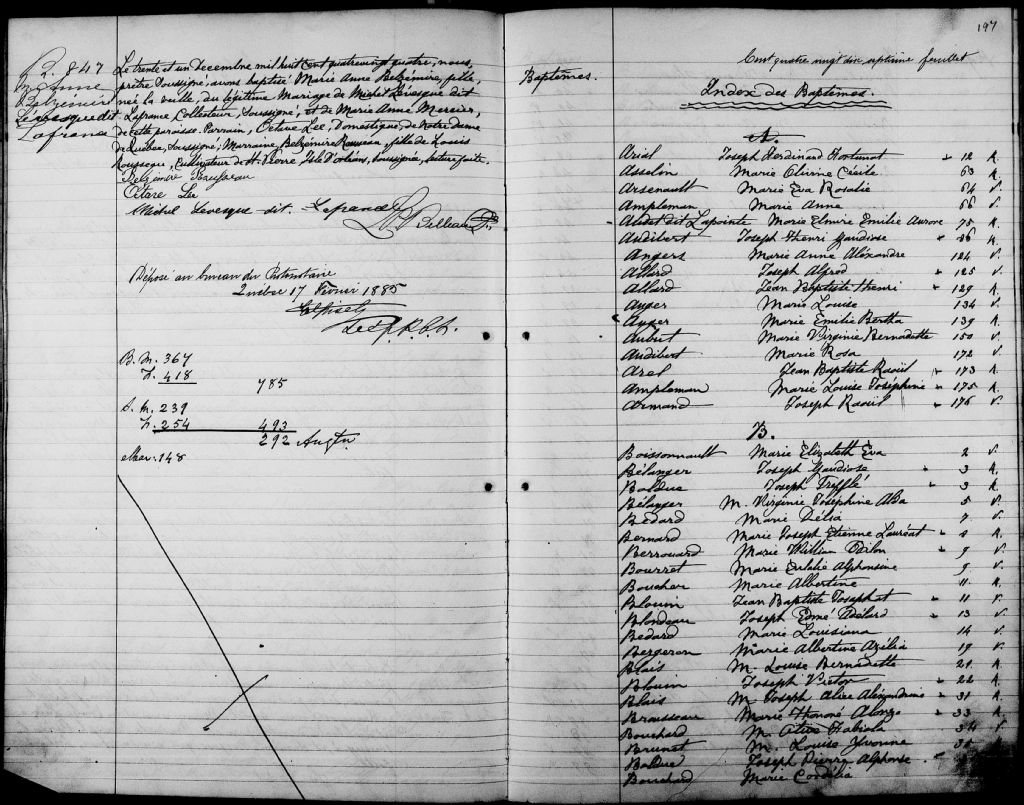 B. 847
M. Anne
Belzémire
Levesque dit
Lafrance
Le trente et un Decembre mil huit cent quatrevingt quatre, nous,
prêtre Soussigné, avons baptisé Marie Anne Belzémire, fille,
née la veille, du légitime Mariage de Michel Lévesque dit
Lafrance Collecteur, Soussigné, et de Marie Anne Mercier,
de cette paroisse. Parrain, Octave Lee, Domestique, de Notre Dame
de Québec, Soussigné; Marraine, Belzémire Rousseau, fille de Louis
Rousseau, Cultivateur de St. Pierre, Isle d'Orléans, soussignée, lecture faite.
Belzémire Rousseau
Octave Lee
Michel Levesque dit. Lafrance
Belleau Ptr.
Déposé au bureau du Protonotaire
Québec 17 Fevrier 1885
Dep. P. C. S.
B. M. 367
F. 418 785
S. M. 239
F. 254 493
292 Augtn
Mar. 148
197
Cent quatre vingt dix septième feuillet
Baptêmes.
Index des Baptêmes.
A.
Ariel Joseph Ferdinand Fortunat " 12 R.
Asselin Marie Olivine Cécile 63 R.
Arsenault Marie Eva Rosalie 64 V.
Ampleman Marie Anne 66 V.
Audet dit Lapointe Marie Elmire Emilie Aurore 75 R.
Audibert Joseph Henri Gaudiose " 86 R.
Angers Marie Anne Alexandre 124 V.
Allard Joseph Alfred " 125 V.
Allard Jean Baptiste Henri " 129 R.
Auger Marie Louise 134 V.
Auger Marie Emilie Bertha 139 R.
Aubut Marie Virginie Bernadette 150 V.
Audibert Marie Rosa 172 V.
Arel Jean Baptiste Raoül " 173 R.
Ampleman Marie Louise Joséphine " 175 R.
Armand Joseph Raoül " 176 V.
B.
Boissonnault Marie Elizabeth Eva 2 V.
Bélanger Joseph Gaudiose " 3 R.
Bolduc Joseph Trefflé " 3 R.
Bélanger M. Virginie Joséphine Alda 5 V.
Bedard Marie Délia 7 V.
Bernard Marie Joseph Etienne Lauréat " 8 R.
Berrouard Marie William Odilon " 9 V.
Bourret Marie Eulalie Alphonsine 9 V.
Boucher Marie Albertine 11 R.
Blouin Jean Baptiste Josephat " 11 V.
Blondeau Joseph Edmé Adélard " 13 V.
Bedard Marie Louisiana 14 V.
Bergeron Marie Albertine Azélia 19 V.
Blais M. Louise Bernadette 21 R.
Blouin Joseph Victor " 22 R.
Blais M. Joseph Alice Alexandrine " 31 R.
Brousseau Marie Honoré Alonzo " 33 R.
Bouchard M. Fabiola 34 V.
Brunet M. Louise Yvonne 35 R.
Bolduc Joseph Pierre Alphonse "
Bouchard Marie Cordélia